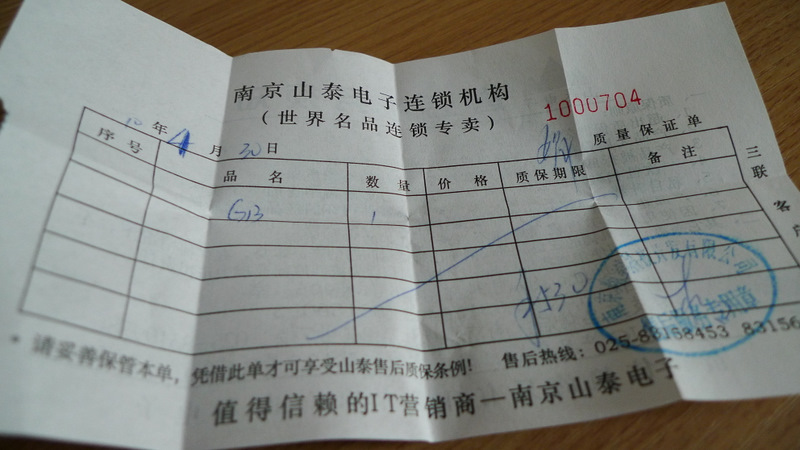 南京山泰电子连锁机构
(世界名品连锁专卖)
1000704
10 年 4 月 30 日
质量保证单
序号 品名 数量 价格 质保期限 备注
G13 1
三联 客户
*请妥善保管本单,凭借此单才可享受山泰售后质保条例! 售后热线: 025-83168453 83156
值得信赖的IT营销商—南京山泰电子